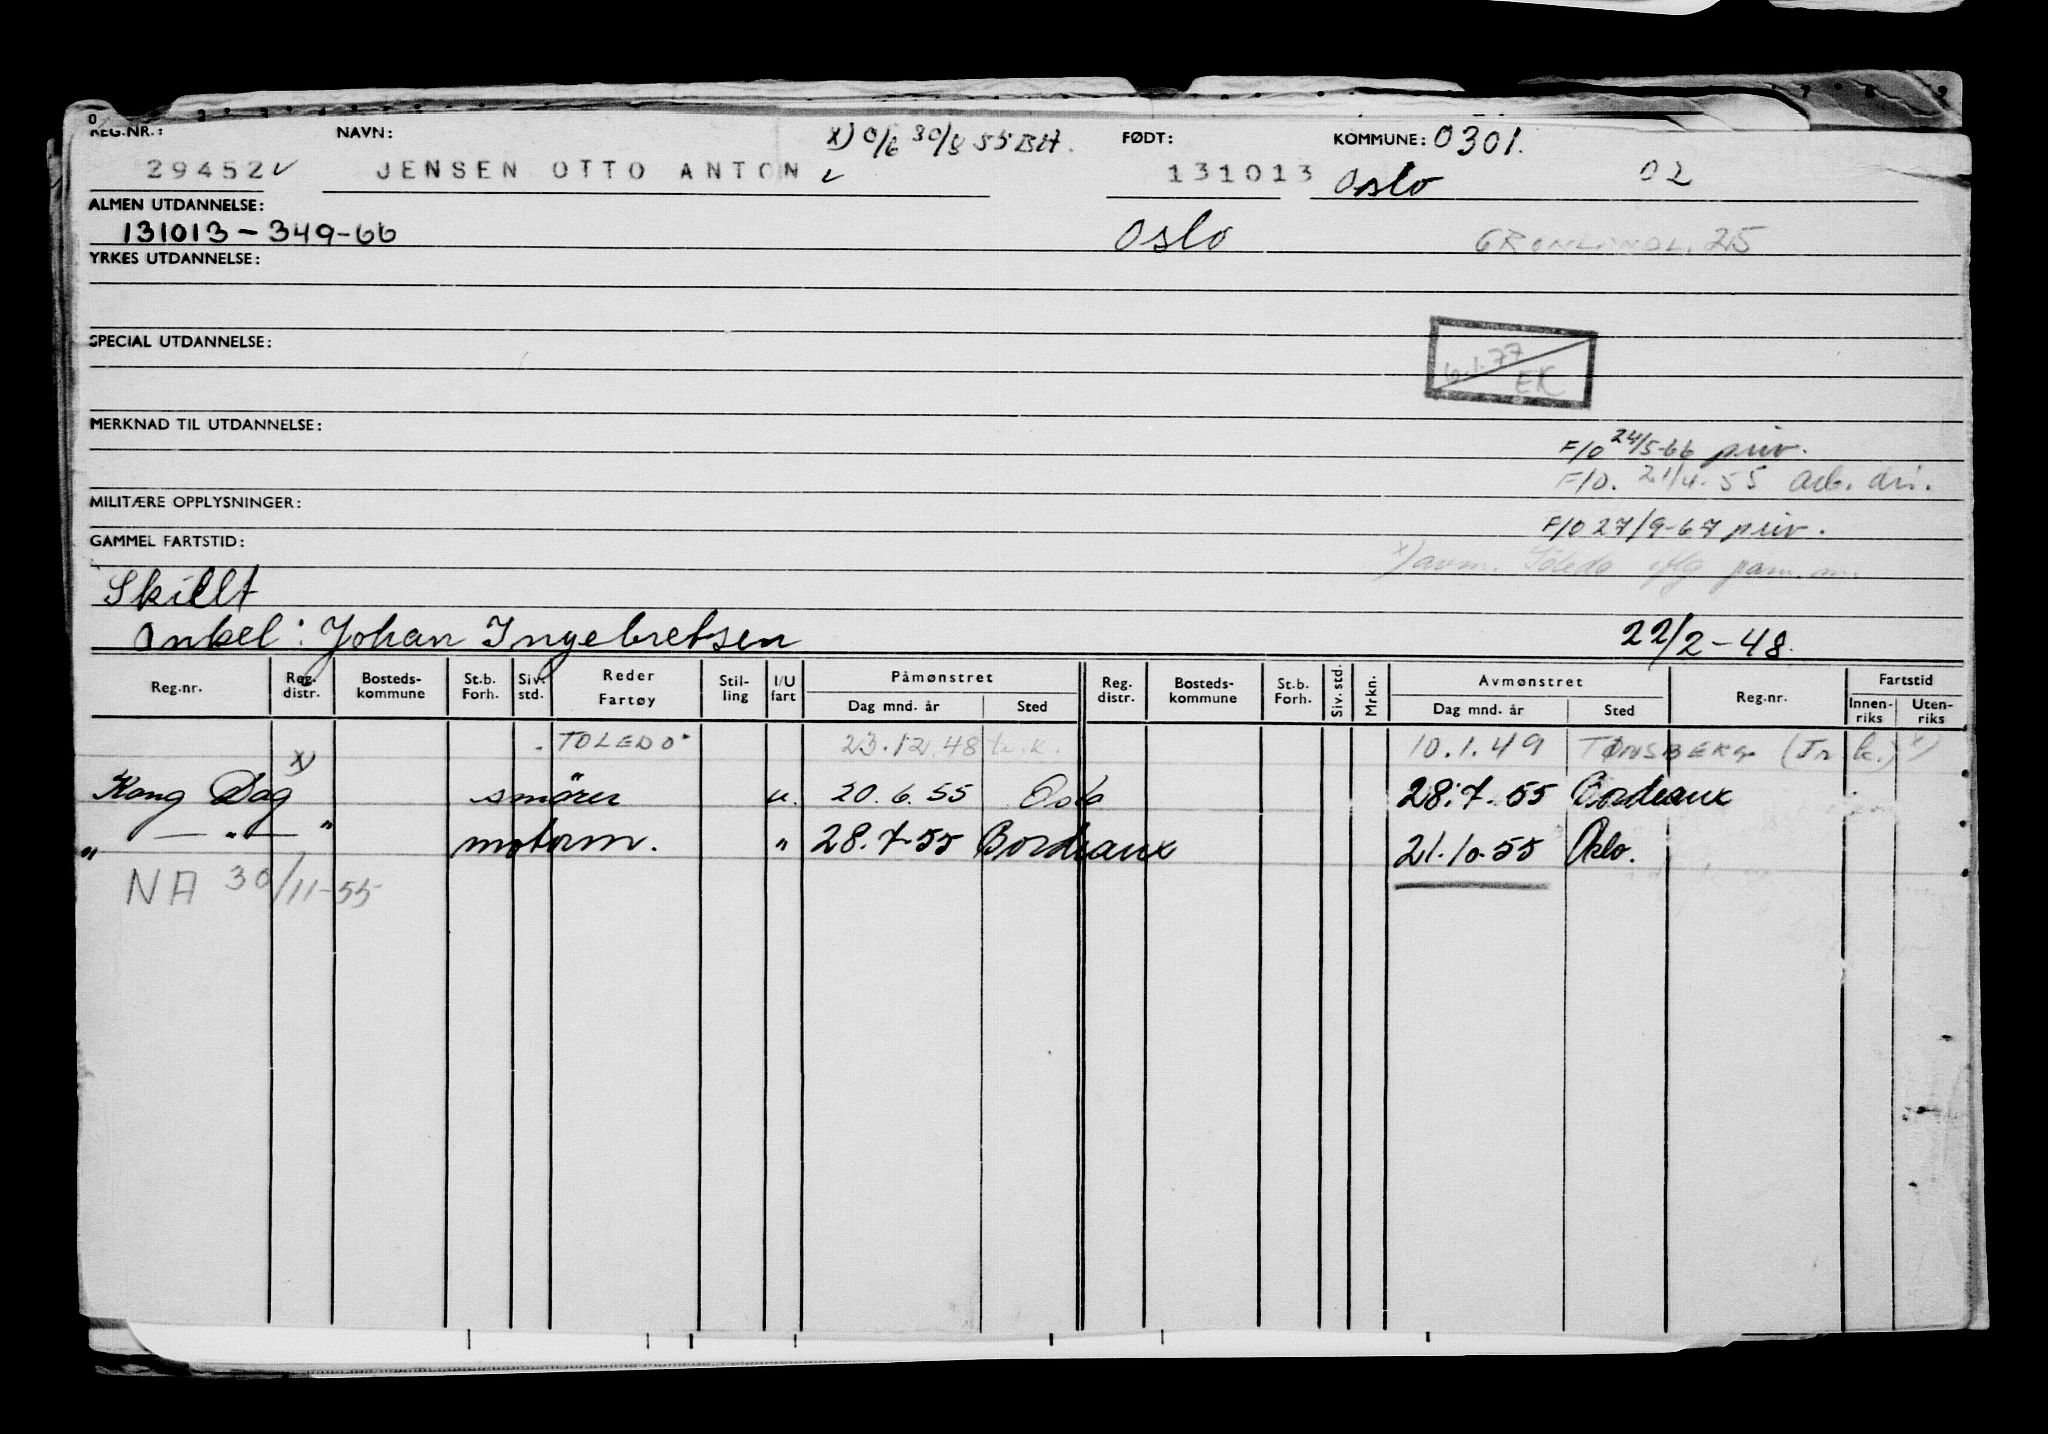 REG.NR.: NAVN: x) 0/6 30/8 55 BH. FØDT: KOMMUNE: 0301.
29452 JENSEN OTTO ANTON 131013 Oslo 02
ALMEN UTDANNELSE:
131013-349-66 Oslo 25
YRKES UTDANNELSE:
SPECIAL UTDANNELSE:
6.1.77
EK
MERKNAD TIL UTDANNELSE:
F/O 24/5-66 priv.
F/O. 21/4. 55 arb. dir.
MILITÆRE OPPLYSNINGER:
F/O 27/9-67 priv.
GAMMEL FARTSTID:
x) avm. Toledo iflg
Skillt
Onkel: Johan Ingebretsen 22/2-48.
Reg.nr. Reg. distr. Bosteds-kommune St.b. Forh. Siv. std. Reder Fartøy Stil-ling I/U fart Påmønstret Dag mnd. år Sted Reg. distr. Bosteds-kommune St.b. Forh. Siv. std. Mrkn. Avmønstret Dag mnd. år Sted Reg.nr. Fartstid Innen-riks Uten-riks
"TOLEDO" 23.12.48 10.1.49 TØNSBERG
x)
Kong Dag smörer u. 20.6.55 Oslo 28.7.55 Bordeaux
" — " — " motorm. " 28.7-55 Bordeaux 21.10.55 Oslo.
NA 30/11-55